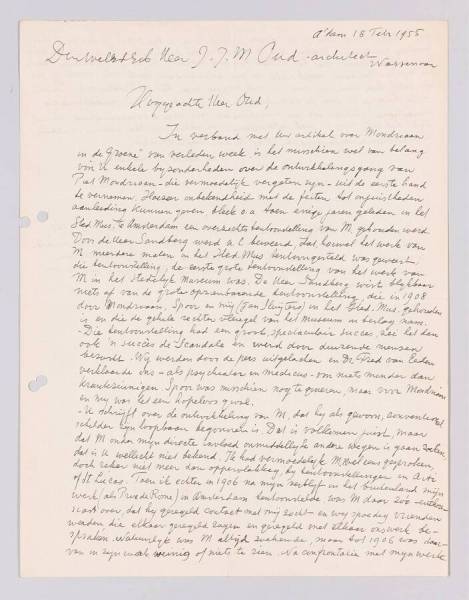 A'dam 18 Febr 1955
Den WelEd Geb Heer J. J. M Oud - architect
Wassenaar
Hooggeachte Heer Oud,
In verband met Uw artikel over Mondriaan
in de Groene" van verleden week is het misschien wel van belang
voor U enkele bijzonderheden over de ontwikkelingsgang van
Piet Mondriaan - die vermoedelijk vergeten zijn - uit de eerste hand
te vernemen. Hoezeer onbekendheid met de feiten tot onjuistheden
aanleiding kunnen geven bleek o.a toen enige jaren geleden in het
Sted. Mus. te Amsterdam een overzichtentoonstelling van M. gehouden werd
Door de Heer Sandberg werd a l beweerd dat, hoewel het werk van
M meerdere malen in het Sted. Mus tentoongesteld was geweest
die tentoonstelling de eerste grote tentoonstelling van het werk van
M in het Stedelijk Museum was. De Heer Sandberg wist blijkbaar
niets af van de grote opzienbarende tentoonstelling, die in 1908
door Mondriaan, Spoor en mij (Jan Sluijters) in het Sted. Mus. gehouden
is en die de gehele rechter vleugel van het museum in beslag nam.
- Die tentoonstelling had een groot, spectaculair succes, zoo het dan
ook 'n succès de Scandale en werd door duizende mensen
bezocht. Wij werden door de pers uitgelachen en Dr Fred. van Eeden
verklaarde ons - als psychiater en medicus - om niets minder dan
krankzinnigen. Spoor was misschien nog te genezen, maar voor Mondriaan
en mij was het een hopeloos geval.
- U schrijft over de ontwikkeling van M, dat hij als gewoon, conventioneel
schilder zijn loopbaan begonnen is. Dat is volkomen juist, maar
dat M onder mijn directe invloed onmiddellijk andere wegen is gaan zoeken
dat is U wellicht niet bekend. Ik had vermoedelijk M. wel eens gesproken,
doch zeker niet meer dan oppervlakkig, bij tentoonstellingen in Arti
of St Lucas. Toen ik echter in 1906 na mijn verblijf in het buitenland mijn
werk (als Prix de Rome) in Amsterdam tentoonstelde was M daar zoo
over, dat hij geregeld contact met mij zocht - en wij spoedig vrienden
werden die elkaar geregeld zagen en geregeld met elkaar ons werk be-
spraken. Natuurlijk was M altijd zoekende, maar tot 1906 was daar-
van in zijn werk weinig of niets te zien. Na confrontatie met mijn werk